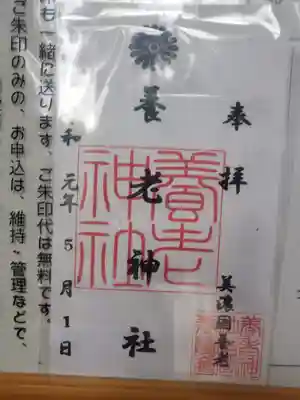 奉拝
美濃国養老
養老神社
養老神社
令和元年5月1日
印も一緒に送ります、ご朱印代は無料です。
ご朱印のみの、お申込は、維持・管理などで、